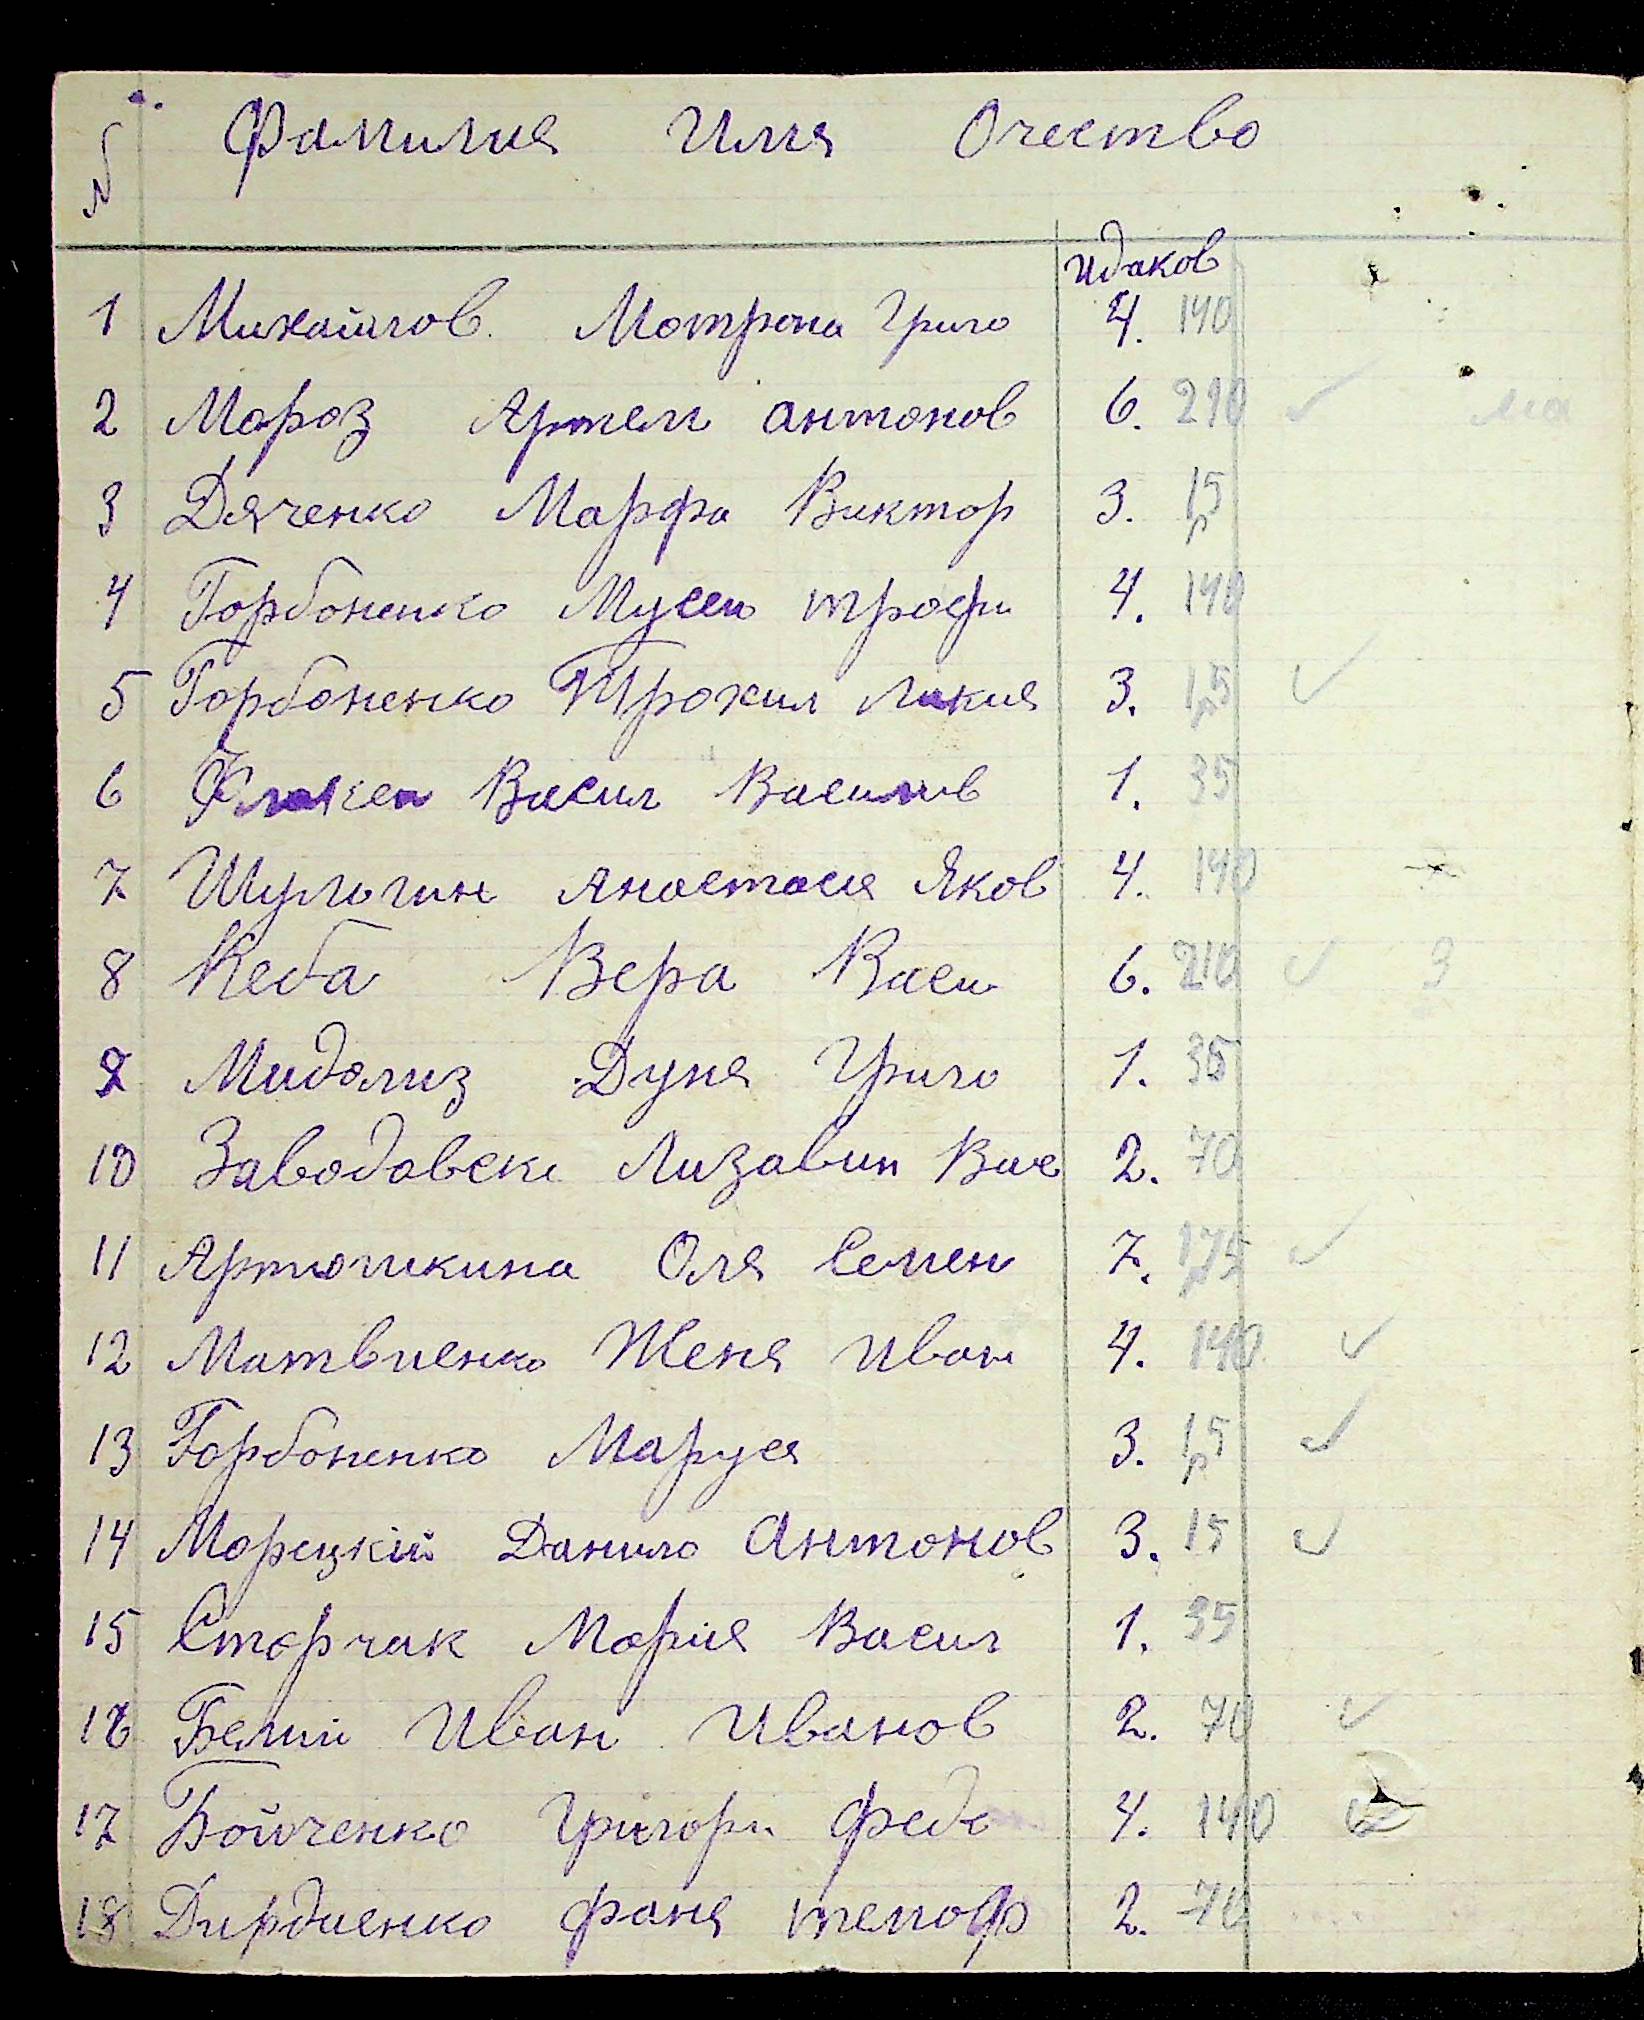 № Фамилия Имя Очество
идаков
1 Михайлов. Мотрона Григо 4. 140
2 Мороз Артем Антонов 6. 210 ✓ ма
3 Дяченко Марфа Виктор 3. 1р5
4 Горбоненко Мусеи трофи 4. 140
5 Горбоненко Трохим Лукия 3. 1р5 ✓
6 Васил Василив 1. 35
7 Шульгин Анастасия Яков 4. 140
8 Кеба Вера Васи 6. 210 ✓ 3
9 Мидолиз Дуня Григо 1. 35
10 Заводовски Лизавин Вас 2. 70
11 Артюшкина Оля Семен 7. 1р75 ✓
12 Матвиенко Женя Иван 4. 140 ✓
13 Горбоненко Маруся 3. 1р5 ✓
14 Морецкій Данило Антонов 3. 15 ✓
15 Сторчак Мария Васил 1. 35
16 Белии Иван Иванов 2. 70 ✓
17 Бойченко Григори Федо 4. 140 ✓
18 Дирдиенко Фаня тимоф 2. 70